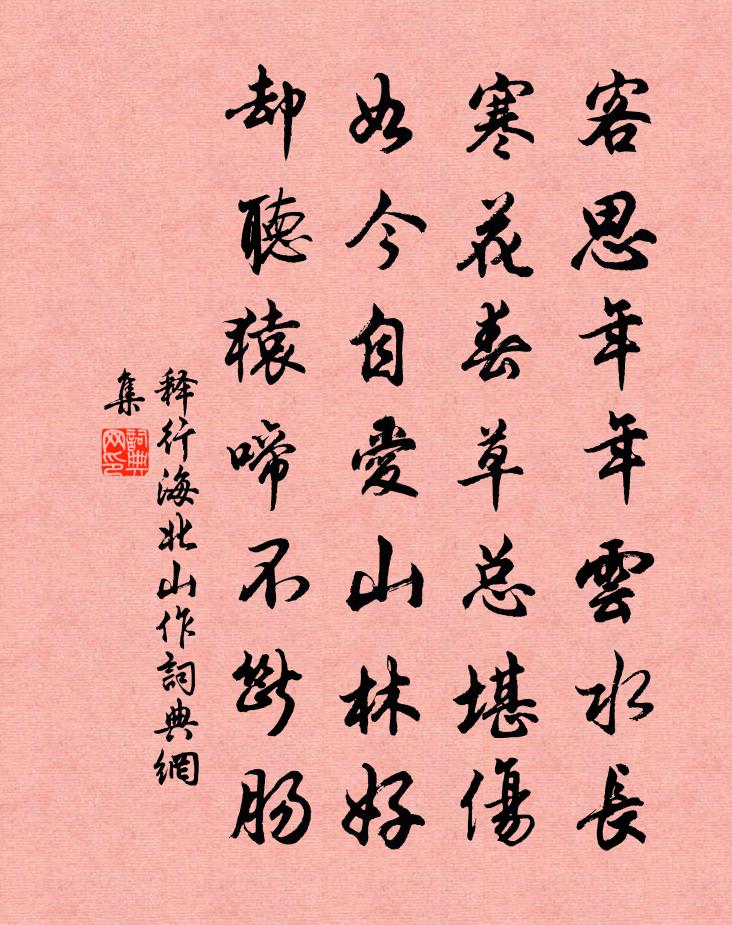 客思年年雲水長
寒花春草总堪傷
如今自愛山林好
却聽猿啼不斷肠
释行海北山作詞典網
集
詞典
网印